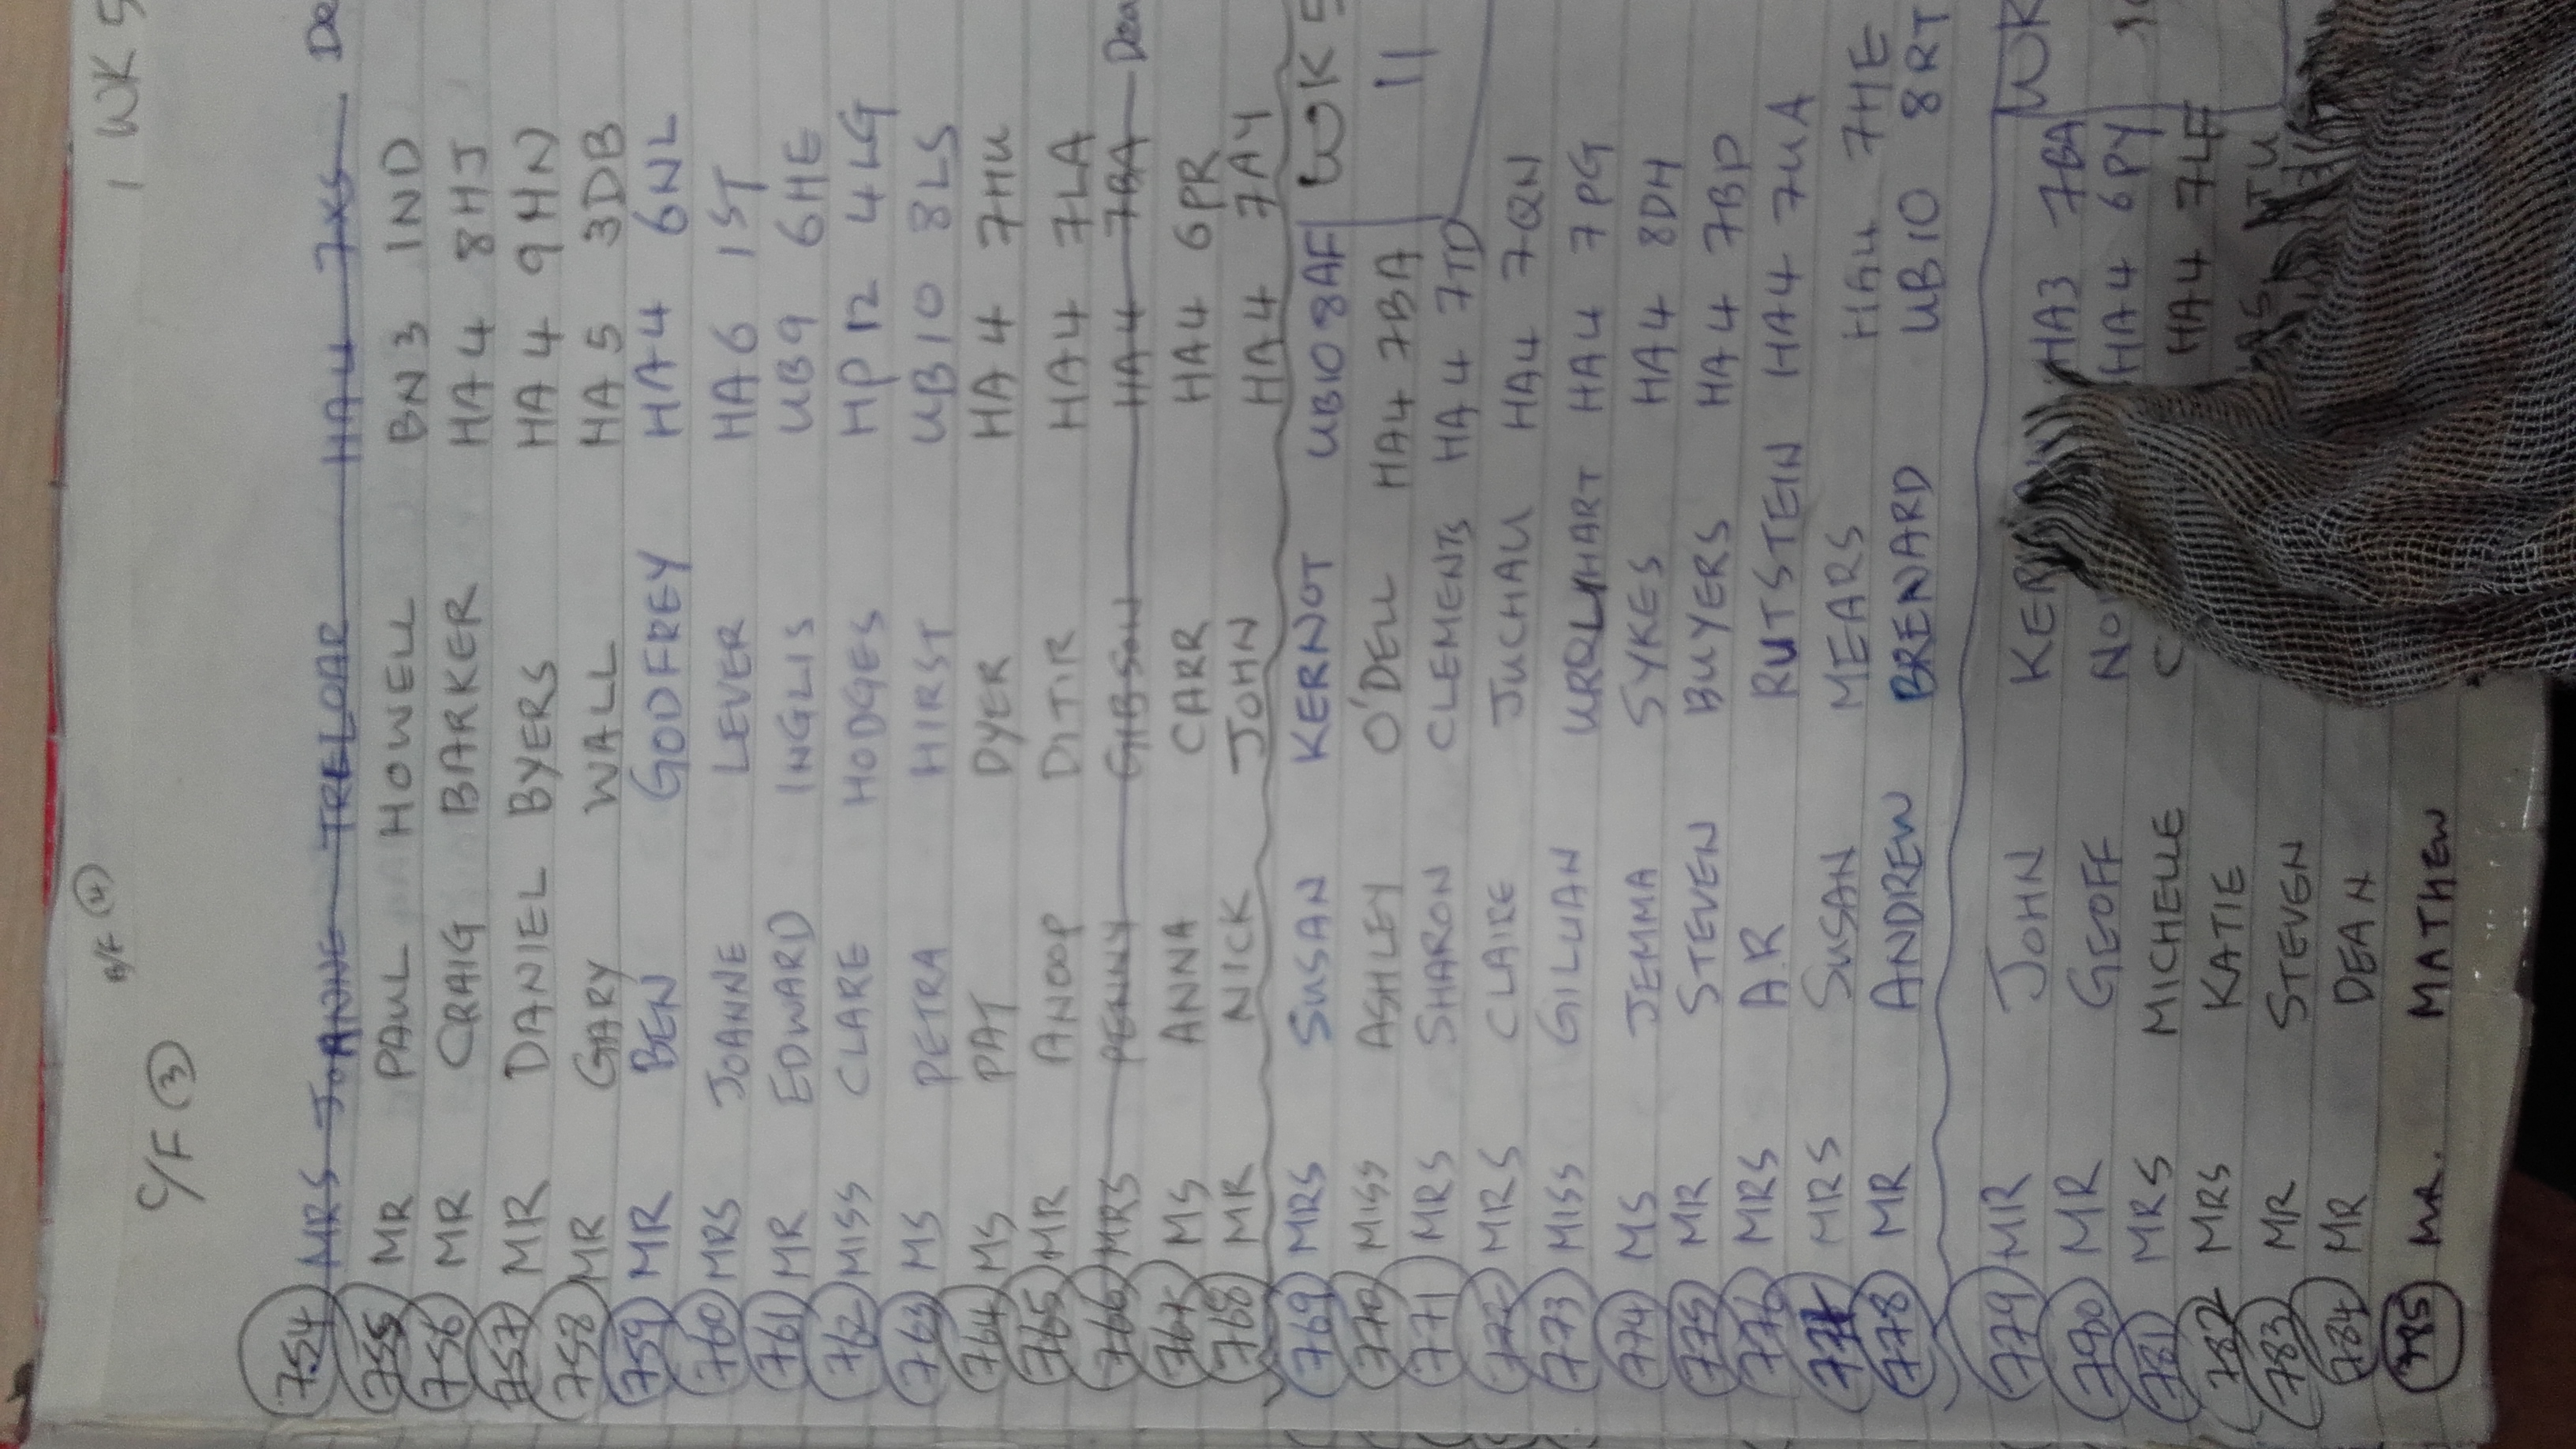 B/F 4
1 WK 5
C/F 3
754 MRS JOANNE TRELOAR HA4 7XS De
755 MR PAUL HOWELL BN3 1ND
756 MR CRAIG BARKER HA4 8HJ
757 MR DANIEL BYERS HA4 9HN
758 MR GARY WALL HA5 3DB
759 MR BEN GODFREY HA4 6NL
760 MRS JOANNE LEVER HA6 1ST
761 MR EDWARD INGLIS UB9 6HE
762 MISS CLARE HODGES HP12 4LG
763 MS PETRA HIRST UB10 8LS
764 MS PAT DYER HA4 7HU
765 MR ANOOP DITIR HA4 7LA
766 MRS PENNY GIBSON HA4 7BA Dea
767 MS ANNA CARR HA4 6PR
768 MR NICK JOHN HA4 7AY
769 MRS SUSAN KERNOT UB10 8AF WK 5
770 MISS ASHLEY O'DELL HA4 7BA 11
771 MRS SHARON CLEMENTS HA4 7TD
772 MRS CLAIRE JUCHAU HA4 7QN
773 MISS GILLIAN URQUHART HA4 7PG
774 MS JEMMA SYKES HA4 8DH
775 MR STEVEN BUYERS HA4 7BP
776 MRS A.R RUTSTEIN HA4 7UA
777 MRS SUSAN MEARS HA4 7HE
778 MR ANDREW BRENARD UB10 8RT
779 MR JOHN HA3 7BA WK
780 MR GEOFF HA4 6PY
781 MRS MICHELLE C HA4 7LF
782 MRS KATIE TU
783 MR STEVEN
784 MR DEAN
785 MR. MATHEW